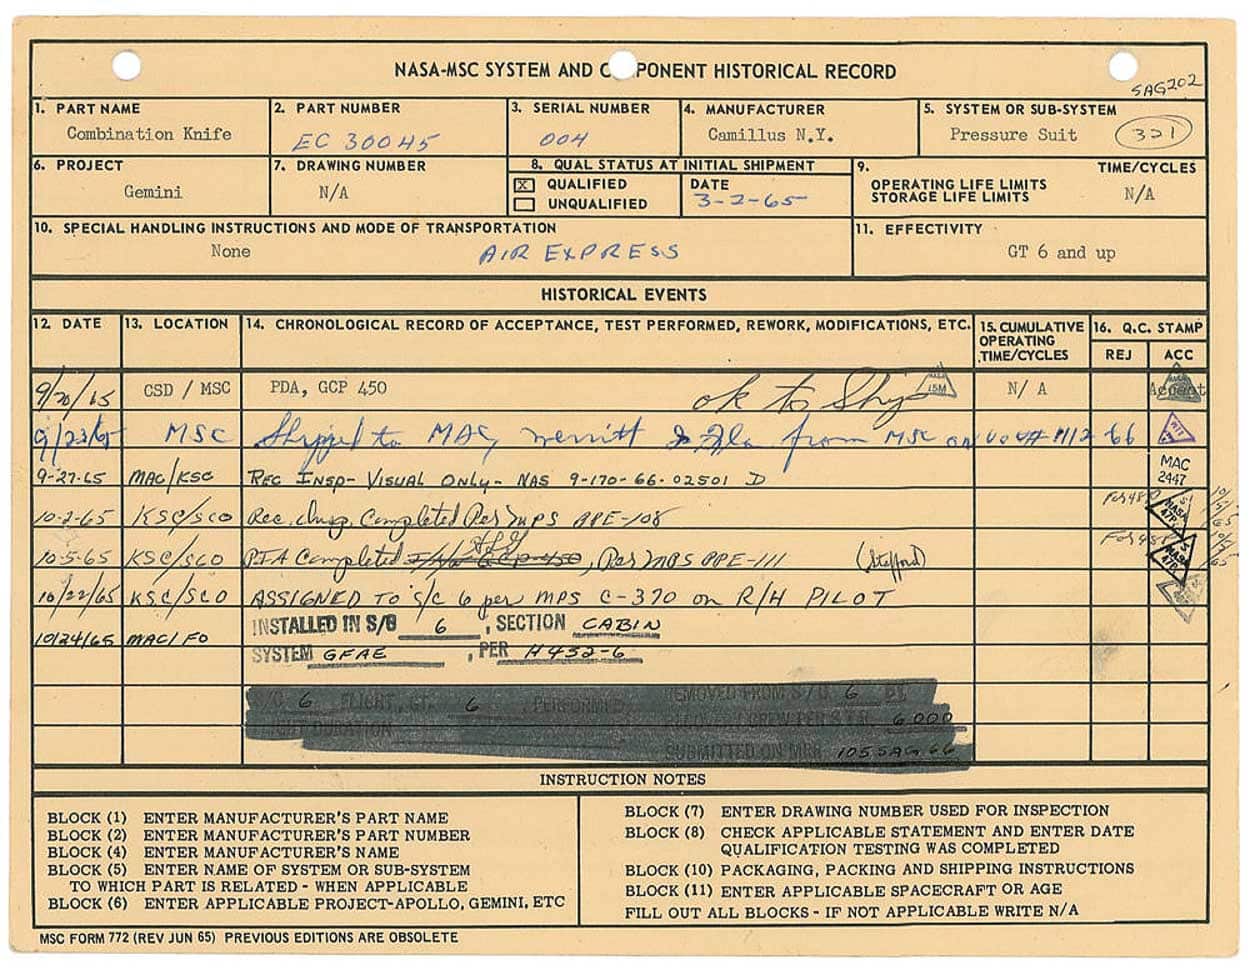 NASA-MSC SYSTEM AND C PONENT HISTORICAL RECORD
SAG202
1. PART NAME
Combination Knife
2. PART NUMBER
EC 30045
3. SERIAL NUMBER
004
4. MANUFACTURER
Camillus N.Y.
5. SYSTEM OR SUB-SYSTEM
Pressure Suit 321
6. PROJECT
Gemini
7. DRAWING NUMBER
N/A
8. QUAL STATUS AT INITIAL SHIPMENT
X QUALIFIED
UNQUALIFIED
DATE
3-2-65
9. TIME/CYCLES
OPERATING LIFE LIMITS
STORAGE LIFE LIMITS
N/A
10. SPECIAL HANDLING INSTRUCTIONS AND MODE OF TRANSPORTATION
None AIR EXPRESS
11. EFFECTIVITY
GT 6 and up
HISTORICAL EVENTS
12. DATE 13. LOCATION 14. CHRONOLOGICAL RECORD OF ACCEPTANCE, TEST PERFORMED, REWORK, MODIFICATIONS, ETC. 15. CUMULATIVE OPERATING TIME/CYCLES 16. Q.C. STAMP
REJ ACC
9/20/65 CSD / MSC PDA, GCP 450 ok to Ship N/ A Accept
9/23/65 MSC Shipped to MAC, Merritt Is Fla from MSC on 66
MAC
2447
9-27-65 MAC/KSC REC INSP- VISUAL ONLY- NAS 9-170-66-02501 D
10-2-65 KSC/SCO Rec. Insp. Completed Per MPS APE-108
10-5-65 KSC/SCO PIA Completed , Per MPS PPE-111 (Stefford)
10/22/65 KSC/SCO ASSIGNED TO S/C 6 per MPS C-370 on R/H PILOT
10/24/65 MAC/FO INSTALLED IN S/C 6, SECTION CABIN
SYSTEM GFAE, PER H432-6
6 FLIGHT, GT. 6, PERFORMED REMOVED FROM S/C 6 BY
FLIGHT DURATION RECOVERY CREW PER S.T.R. 6.000
SUBMITTED ON MRR 105 SAG 66
INSTRUCTION NOTES
BLOCK (1) ENTER MANUFACTURER'S PART NAME
BLOCK (2) ENTER MANUFACTURER'S PART NUMBER
BLOCK (4) ENTER MANUFACTURER'S NAME
BLOCK (5) ENTER NAME OF SYSTEM OR SUB-SYSTEM
TO WHICH PART IS RELATED - WHEN APPLICABLE
BLOCK (6) ENTER APPLICABLE PROJECT-APOLLO, GEMINI, ETC
BLOCK (7) ENTER DRAWING NUMBER USED FOR INSPECTION
BLOCK (8) CHECK APPLICABLE STATEMENT AND ENTER DATE
QUALIFICATION TESTING WAS COMPLETED
BLOCK (10) PACKAGING, PACKING AND SHIPPING INSTRUCTIONS
BLOCK (11) ENTER APPLICABLE SPACECRAFT OR AGE
FILL OUT ALL BLOCKS - IF NOT APPLICABLE WRITE N/A
MSC FORM 772 (REV JUN 65) PREVIOUS EDITIONS ARE OBSOLETE